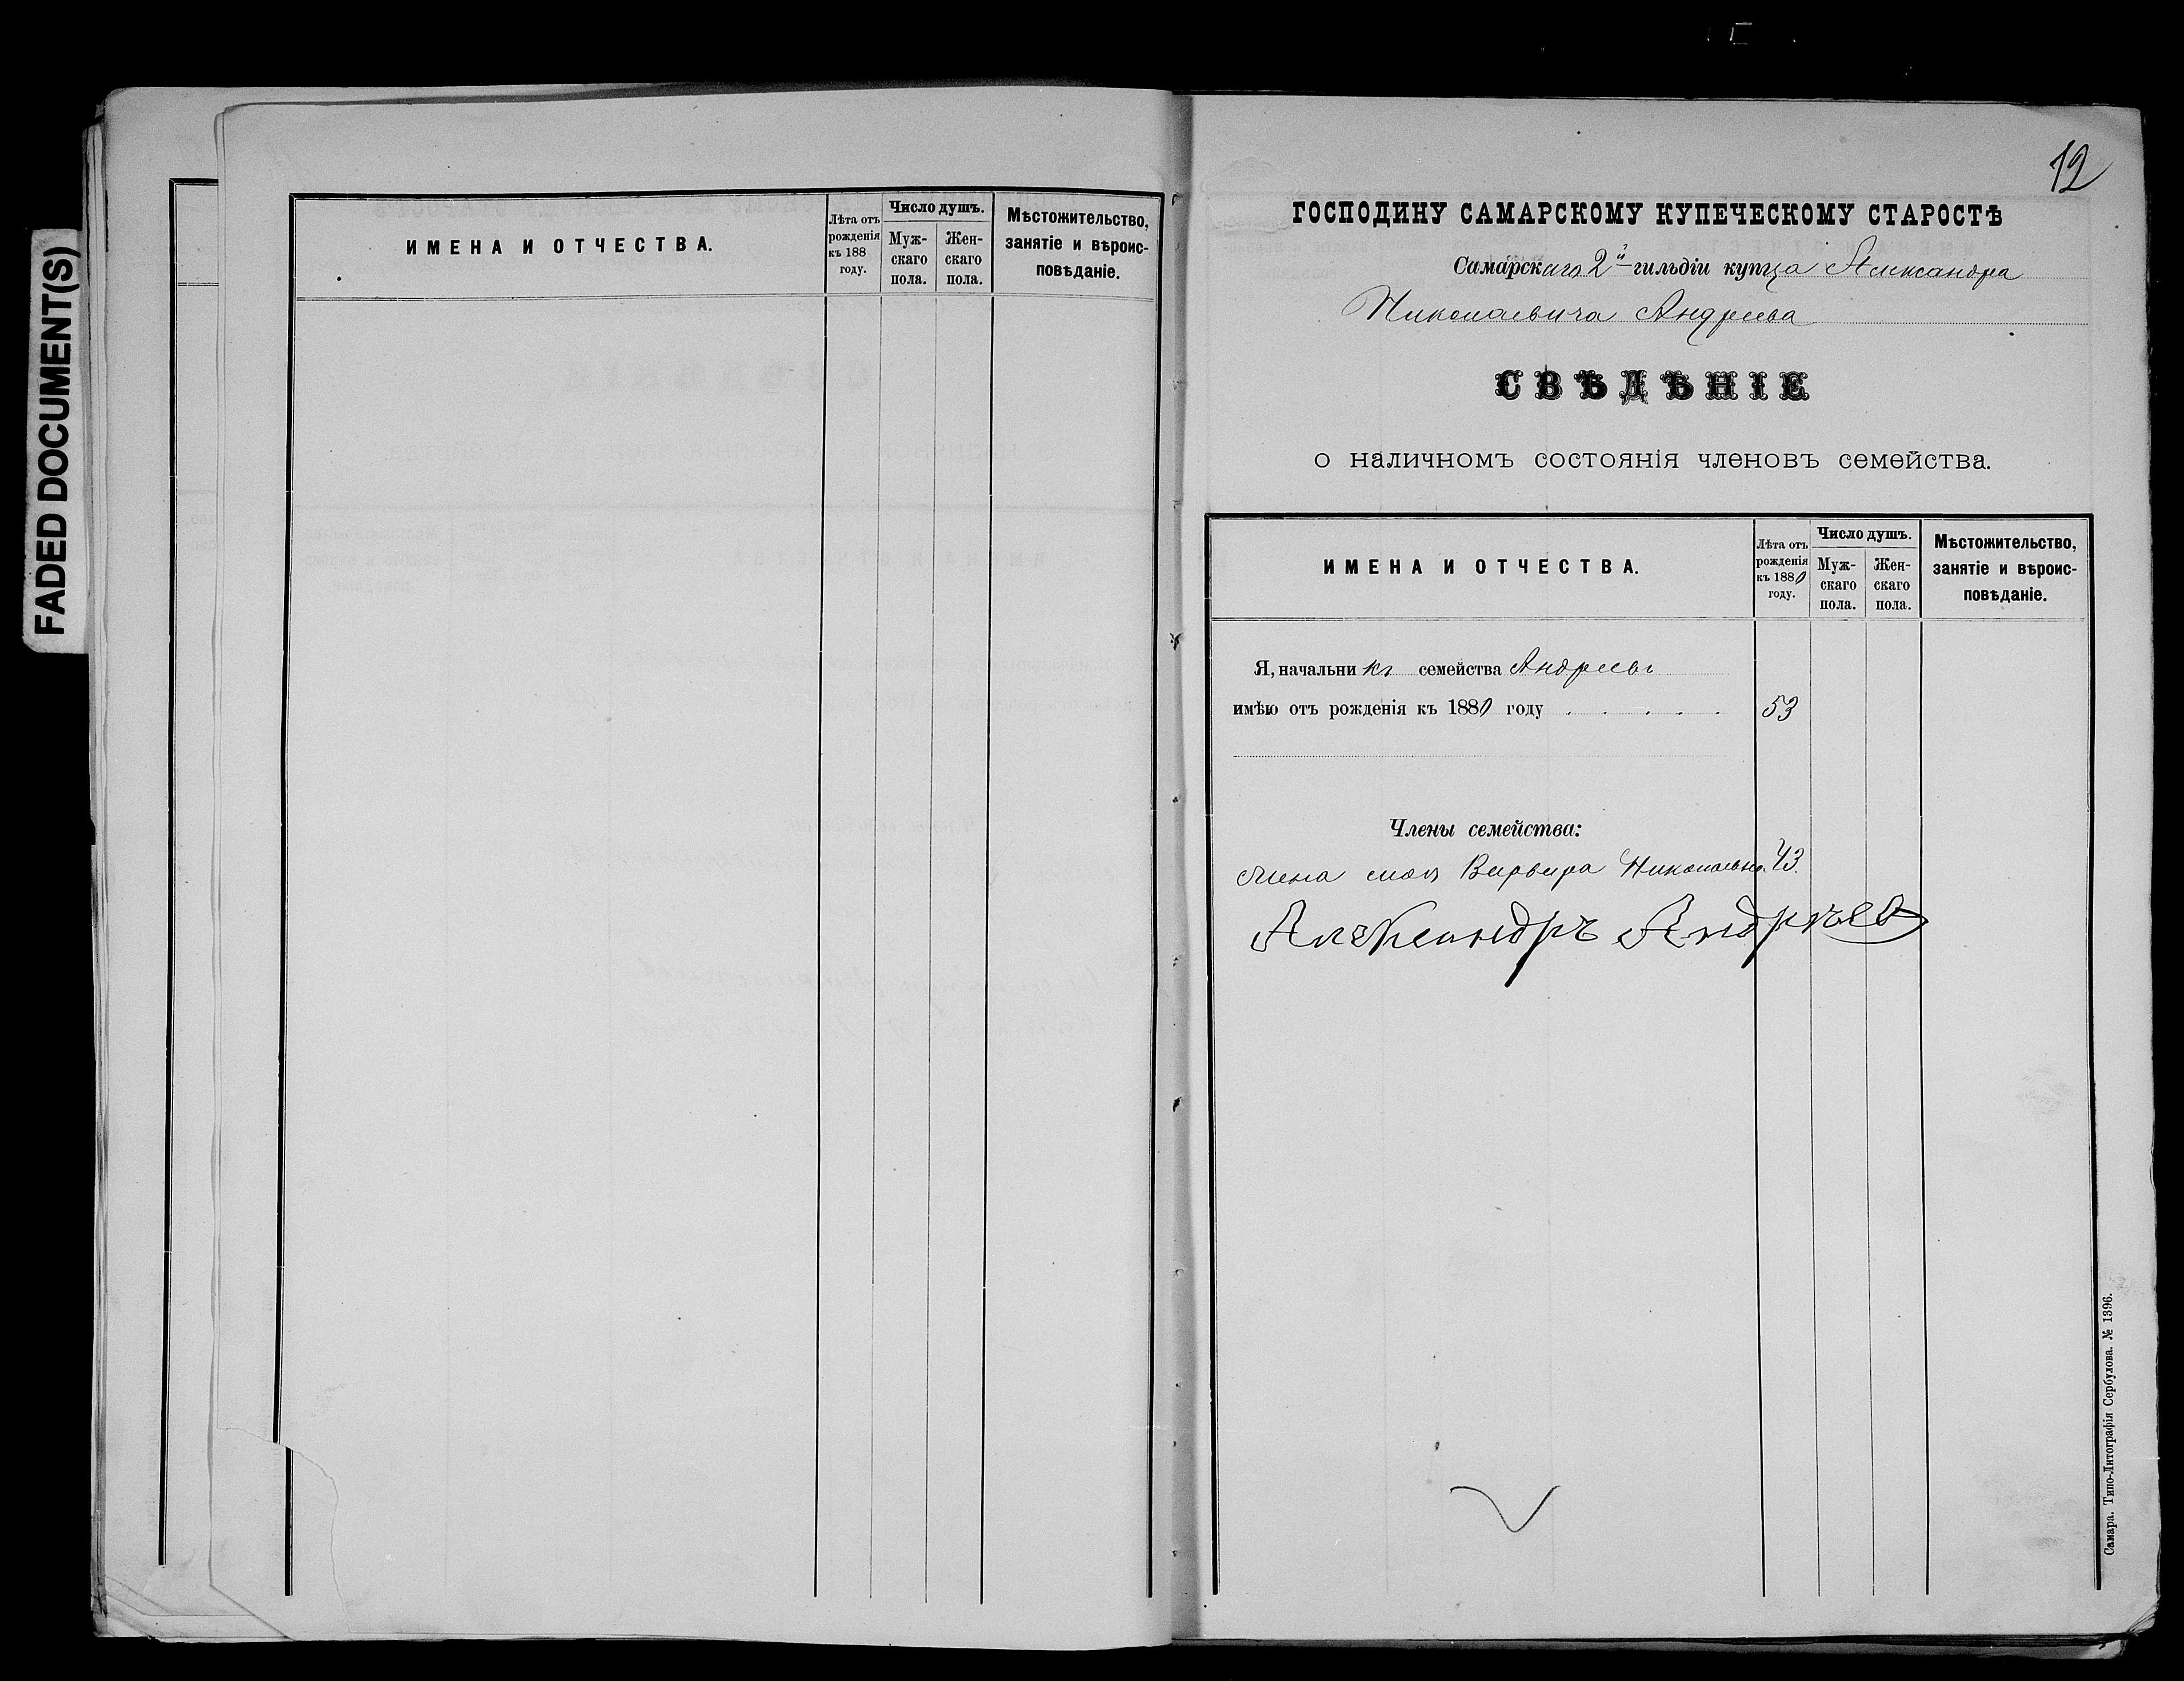 FADED DOCUMENT(S)
ИМЕНА И ОТЧЕСТВА.
Лѣта отъ рожденія къ 188 году.
Число душъ.
Мужскаго пола.
Женскаго пола.
Мѣстожительство, занятіе и вѣроисповѣданіе.
12
ГОСПОДИНУ САМАРСКОМУ КУПЕЧЕСКОМУ СТАРОСТѢ
Самарскаго 2й гильдіи купца Александра
Николаевича Андреева
СВѢДѢНІЕ
о наличномъ состоянія членовъ семейства.
ИМЕНА И ОТЧЕСТВА.
Лѣта отъ рожденія къ 1880 году.
Число душъ.
Мужскаго пола.
Женскаго пола.
Мѣстожительство, занятіе и вѣроисповѣданіе.
Я, начальникъ семейства Андреевъ
имѣю отъ рожденія къ 1880 году . . . . . 53
Члены семейства:
жена моя Варвара Николаевна 43.
Александръ Андрѣевъ
Самара. Типо-Литографія Сербулова. № 1396.